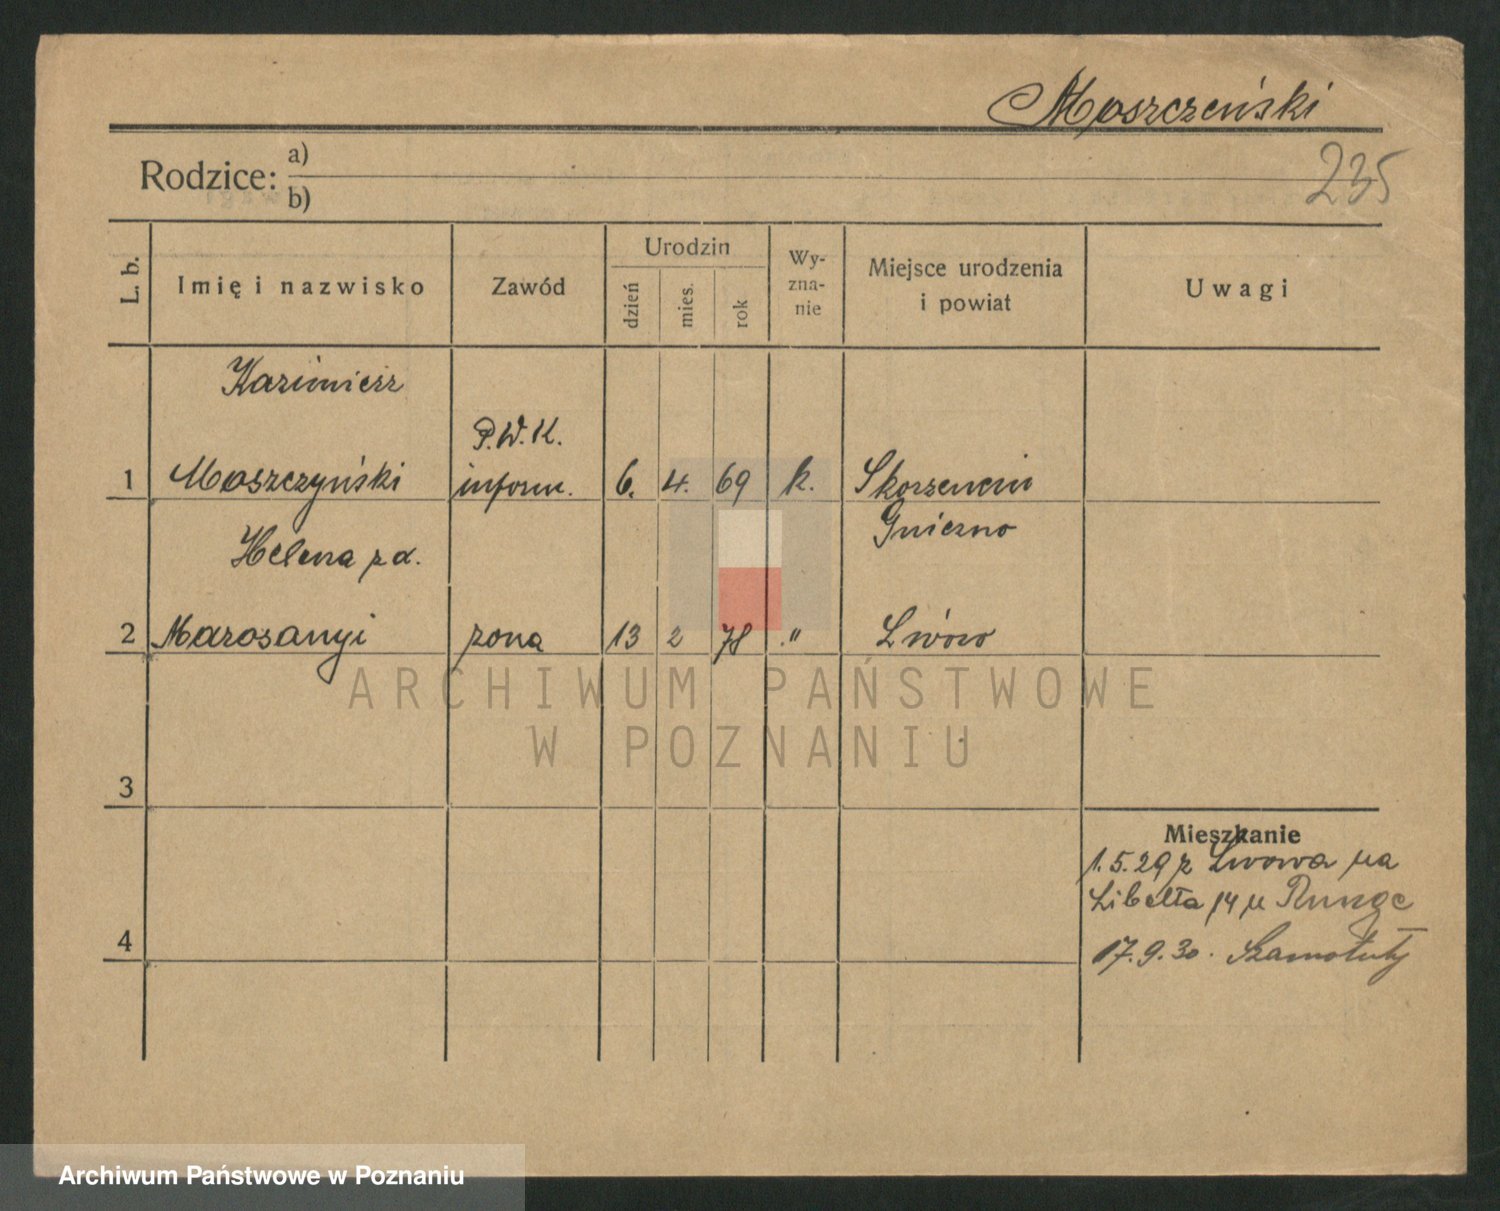 Moszczeński
Rodzice: a)
b)
235
L. b.
Imię i nazwisko
Zawód
Urodzin
dzień
mies.
rok
Wy-
zna-
nie
Miejsce urodzenia
i powiat
Uwagi
Kazimierz
P.W.K.
1 Moszczyński inform. 6. 4. 69 k. Skorzencin
Gniezno
Helena z d.
2 Marosanyi żona 13 2 78 " Lwów
3
Mieszkanie
1.5.29 z Lwowa na
Libelta 14 u Runge
4
17.9.30. Szamotuły
ARCHIWUM PAŃSTWOWE
W POZNANIU
Archiwum Państwowe w Poznaniu